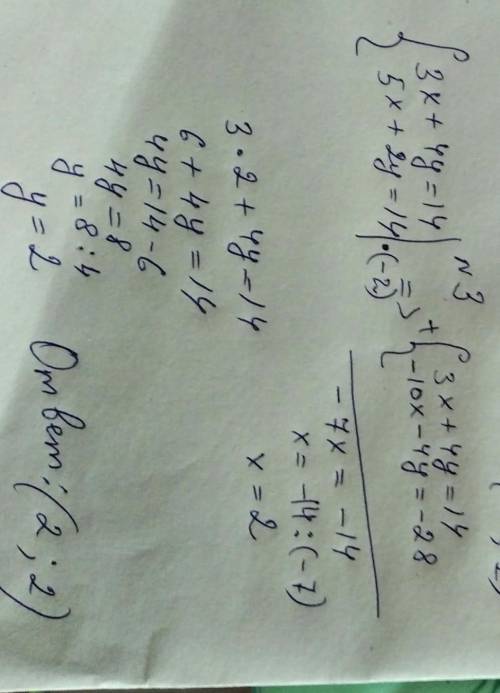 N3
{ 3x + 4y = 14
5x + 2y = 14 | · (-2) => + { 3x + 4y = 14
-10x - 4y = -28
-7x = -14
x = -14 : (-7)
x = 2
3 · 2 + 4y = 14
6 + 4y = 14
4y = 14 - 6
4y = 8
y = 8 : 4
y = 2
Ответ: (2 ; 2)